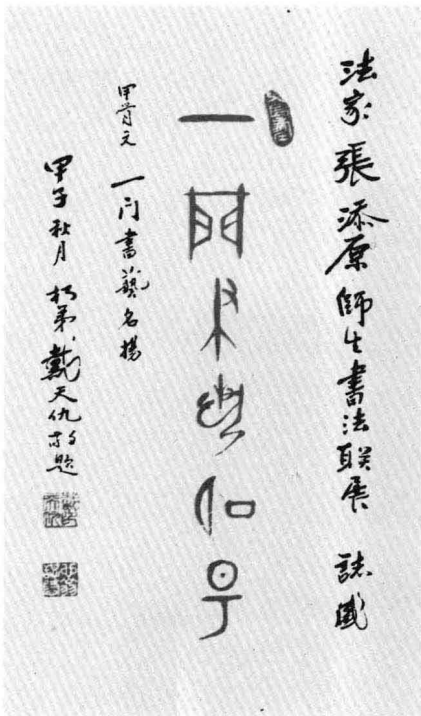 法家張添原師生書法联展 誌盛
一門書藝名揚
甲骨文 一门書藝名揚
甲子秋月 弟戴天仇敬題